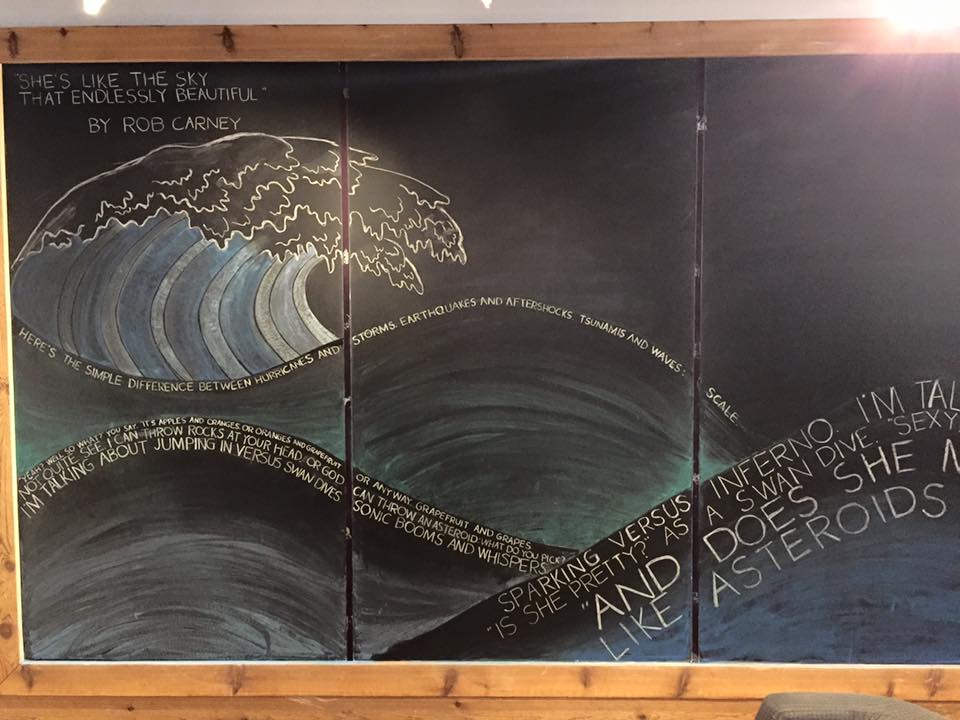 "SHE'S LIKE THE SKY
THAT ENDLESSLY BEAUTIFUL"
BY ROB CARNEY
HERE'S THE SIMPLE DIFFERENCE BETWEEN HURRICANES AND STORMS. EARTHQUAKES AND AFTERSHOCKS TSUNAMIS AND WAVES: SCALE.
YEAH? WELL, SO WHAT? YOU SAY. IT'S APPLES AND ORANGES OR ORANGES AND GRAPEFRUIT OR ANYWAY. GRAPEFRUIT AND GRAPES
NOT QUITE. SEE, I CAN THROW ROCKS AT YOUR HEAD, OR GOD CAN THROW AN ASTEROID: WHAT DO YOU PICK?
I'M TALKING ABOUT JUMPING IN VERSUS SWAN DIVES SONIC BOOMS AND WHISPERS
SPARKING VERSUS INFERNO. I'M TAL
"IS SHE PRETTY?" AS A SWAN DIVE. "SEXY
"AND DOES SHE M
LIKE ASTEROIDS